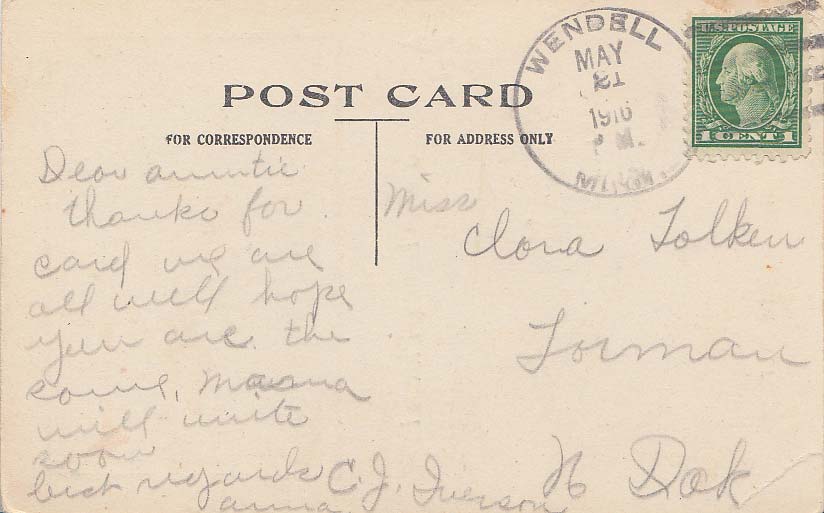 WENDELL
MAY
21
1916
P M.
MINN.
U.S. POSTAGE
1 CENT 1
POST CARD
FOR CORRESPONDENCE
FOR ADDRESS ONLY
Dear auntie
thanks for
card we are
all well hope
you are the
same, Mama
will write
soon
best regards
anna
C. J. Iverson
Miss
Clara Tolken
Forman
N Dak